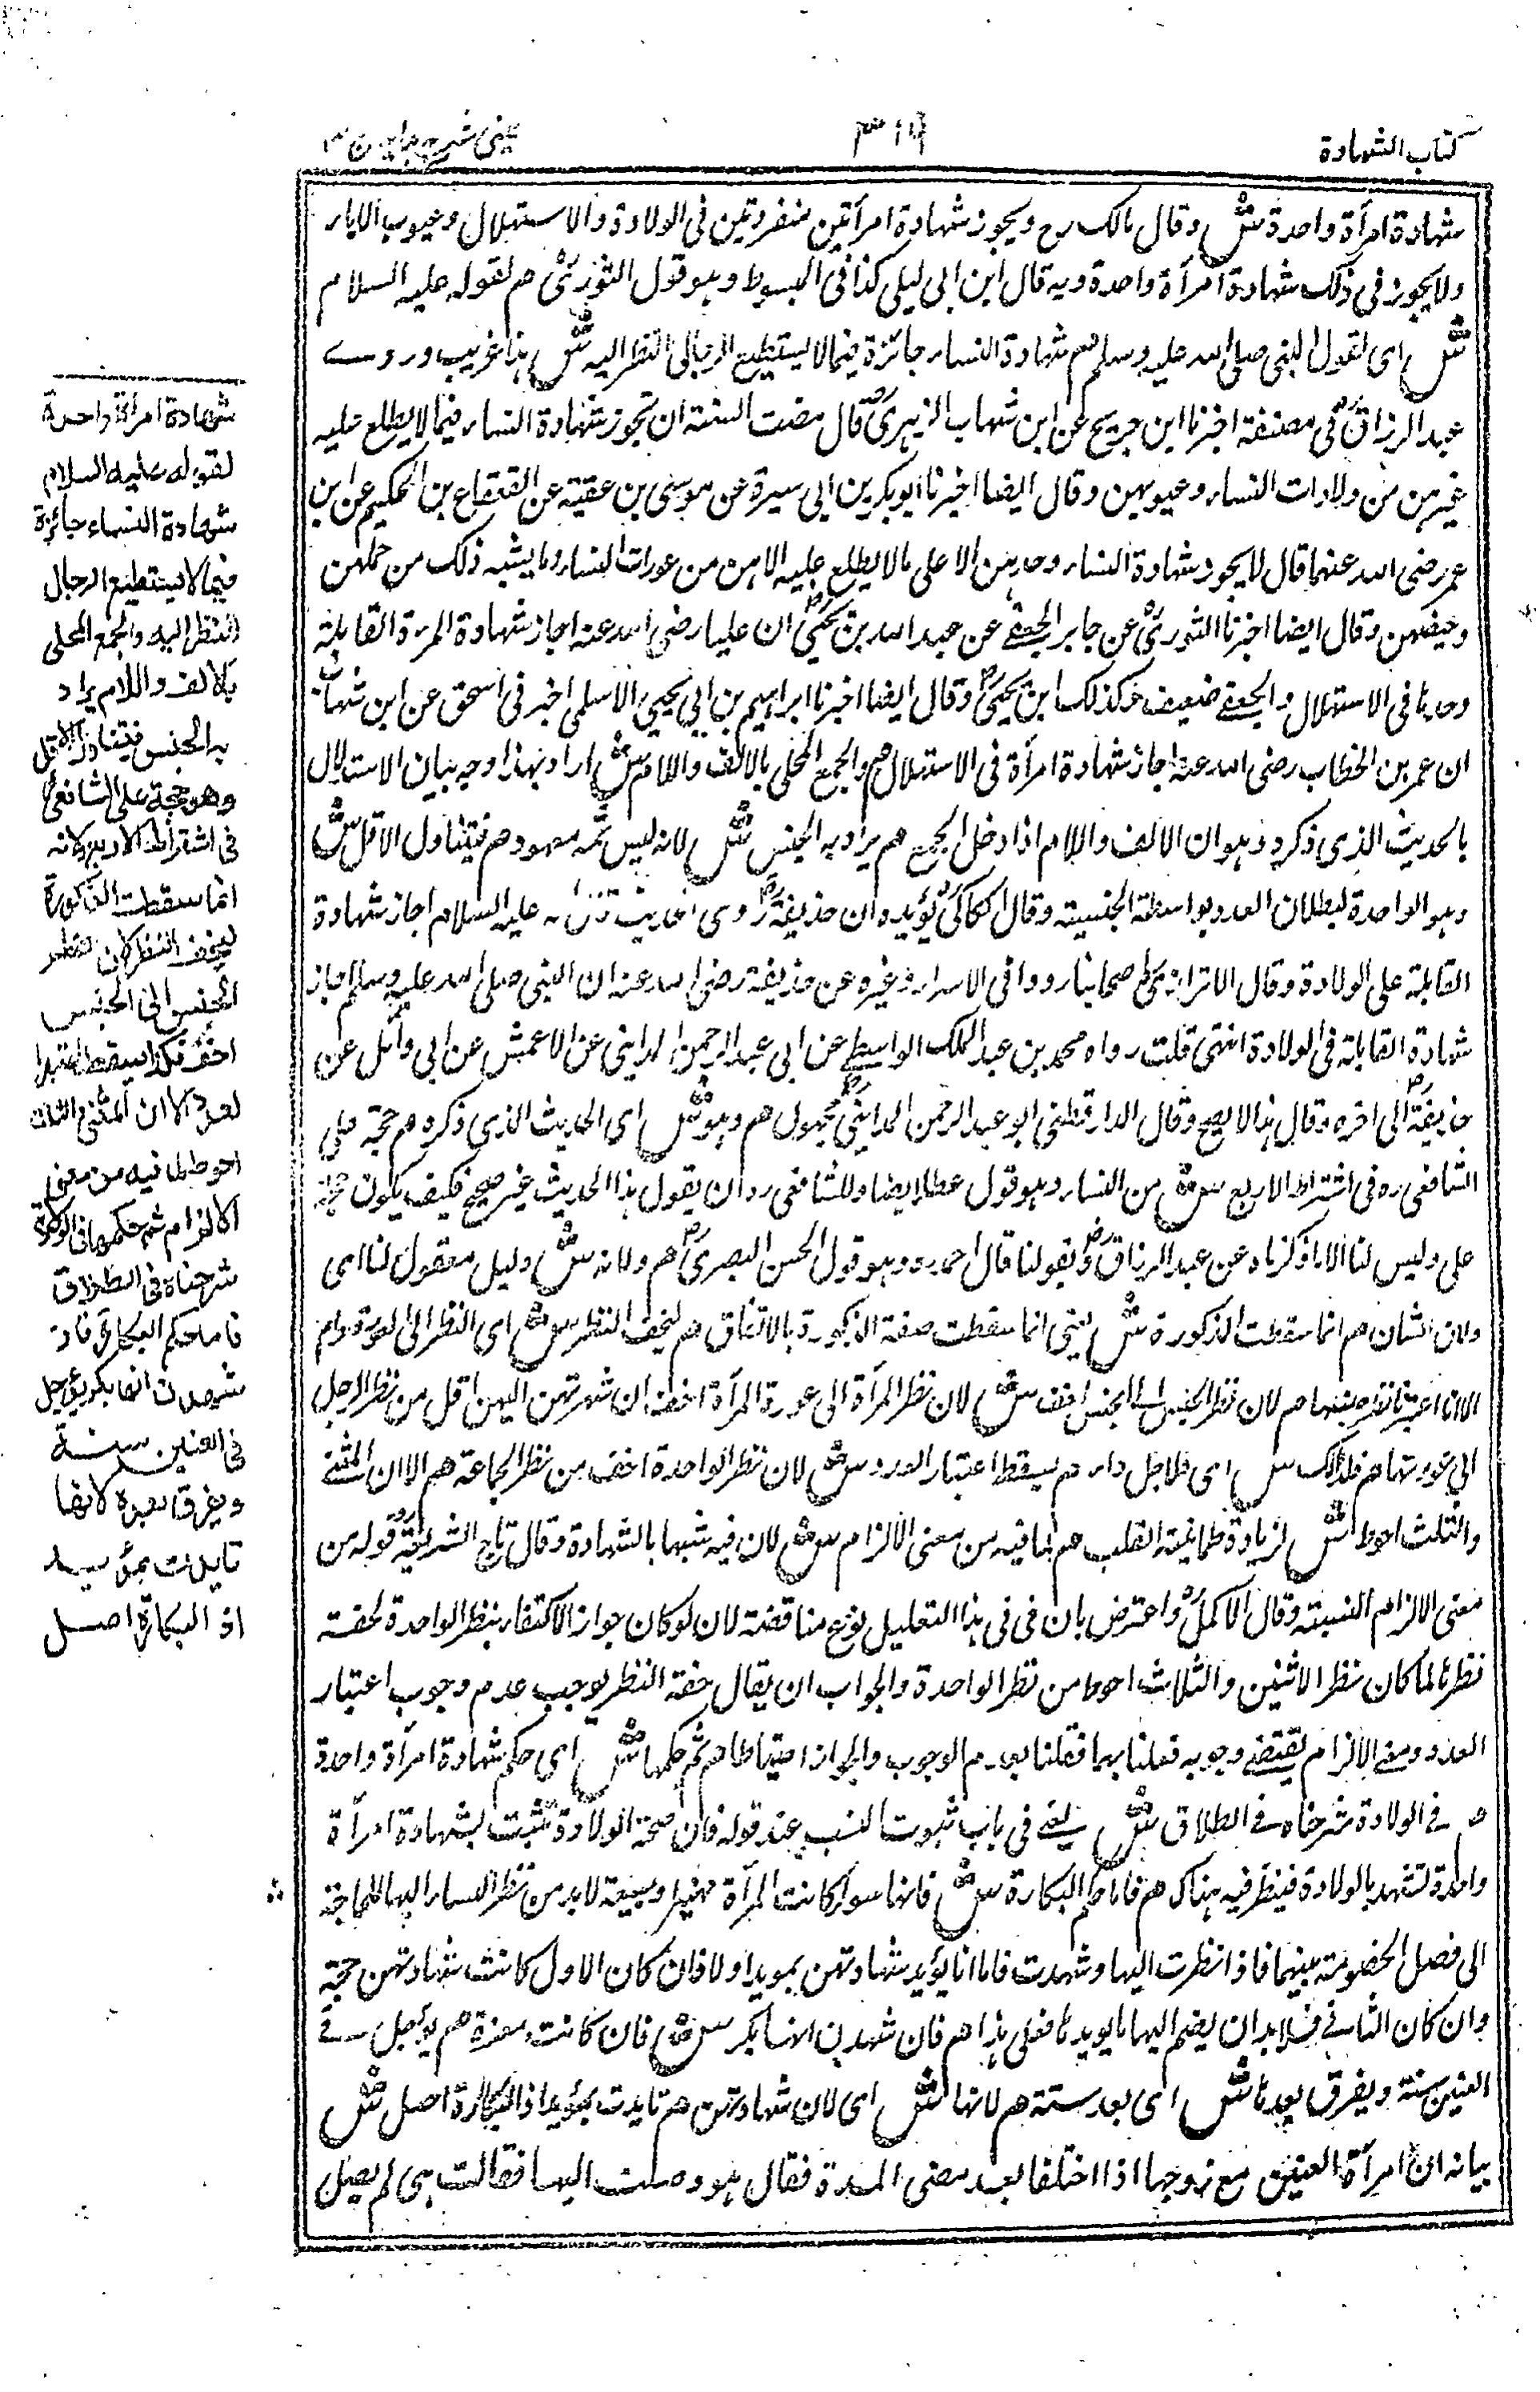 كتاب الشهادة
٣١٦
عینی شرح ہدایہ ج ٣
شهادة امرأة واحدة ش وقال مالك رح ويجوز شهادة امرأتين منفردتين في الولادة والاستهلال وعيوب الاماء
ولا يجوز في ذلك شهادة امرأة واحدة وبه قال ابن ابي ليلى كذا في المبسوط وهو قول الثوري م لقوله عليه السلام
ش اي لقول النبي صلى الله عليه وسلم م شهادة النساء جائزة فيما لا يستطيع الرجال النظر اليه ش هذا غريب وروى
عبد الرزاق في مصنفه اخبرنا ابن جريج عن ابن شهاب الزهري قال مضت السنة ان تجوز شهادة النساء فيما لا يطلع عليه
غيرهن من ولادات النساء وعيوبهن وقال ايضا اخبرنا ابو بكر بن ابي سبرة عن موسى بن عقبة عن القعقاع بن الحكيم عن ابن
عمر رضى الله عنهما قال لا يجوز شهادة النساء وحدهن الا على ما لا يطلع عليه الا هن من عورات النساء وما يشبه ذلك من حملهن
وحيضهن وقال ايضا اخبرنا الثوري عن جابر الجعفي عن عبد الله بن يحيى ان عليا رضى الله عنه اجاز شهادة المرءة القابلة
وحدها في الاستهلال والجعفي ضعيف وكذلك ابن يحيى وقال ايضا اخبرنا ابراهيم بن ابي يحيى الاسلمي اخبرني اسحق عن ابن شهاب
ان عمر بن الخطاب رضى الله عنه اجاز شهادة امرأة في الاستهلال م والجمع المحلى بالالف واللام ش اراد بهذا وجه بيان الاستدلال
بالحديث الذي ذكره وهو ان الالف واللام اذا دخل الجمع م يراد به الجنس ش لانه ليس ثمه معهود م فيتناول الاقل ش
وهو الواحدة لبطلان العدد بواسطة الجنسية وقال الكاكي يؤيده ان حذيفة روى الحديث انه عليه السلام اجاز شهادة
القابلة على الولادة وقال الاترازي اصحابنا رووا في الاسرار وغيره عن حذيفة رضى الله عنه ان النبي صلى الله عليه وسلم اجاز
شهادة القابلة في الولادة انتهى قلت رواه محمد بن عبد الملك الواسطي عن ابي عبد الرحمن المدايني عن الاعمش عن ابي وائل عن
حذيفة الى اخره وقال هذا لا يصح وقال الدارقطني ابو عبد الرحمن المدايني مجهول م وهو ش اي الحديث الذي ذكره م حجة على
الشافعي ره في اشتراط الاربع ش من النساء وهو قول عطاء ايضا وللشافعي ره ان يقول هذا الحديث غير صحيح فكيف يكون حجة
علي وليس لنا الا ما ذكرناه عن عبد الرزاق وبقولنا قال احمد ره وهو قول الحسن البصري م ولانه ش دليل معقول لنا اي
ولان الشان م انما سقطت الذكورة ش يعني انما سقطت صفة الذكورة بالاتفاق م ليخف النظر ش اي النظر الى العورة حرام
الا انا اعتبرنا نظر بعضها م لان نظر الجنس الى الجنس اخف ش لان نظر المرأة الى عورة المرأة اخف ان شهوتهن اليهن اقل من نظر الرجل
الى عورتها م فلذلك ش اي فلاجل ذلك م يسقط اعتبار العدد ش لان نظر الواحدة اخف من نظر الجماعة م الا ان المثنى
والثلث احوط ش لزيادة طمانينة القلب م لما فيه من معنى الالزام ش لان فيه شبها بالشهادة وقال تاج الشريعة قوله من
معنى الالزام النسبة وقال الاكمل واعترض بان في هذا التعليل نوع مناقضة لان لو كان جواز الاكتفاء بنظر الواحدة لخفة
نظرها لما كان نظر الاثنين والثلاث احوط من نظر الواحدة والجواب ان يقال خفة النظر يوجب عدم وجوب اعتبار
العدد ومعنى الالزام يقتضي وجوبه فعلنا بهما فقلنا بعدم الوجوب والجواز احتياطا م ثم حكمها ش اي حكم شهادة امرأة واحدة
م في الولادة شرحناه في الطلاق ش يعني في باب ثبوت النسب عند قوله فان صحة الولادة تثبت بشهادة امرأة
واحدة تشهد بالولادة فينظر فيه هناك م فاما حكم البكارة ش فانها سواء كانت المرأة مهيرة او مبيعة لا بد من نظر النساء اليها للحاجة
الى فصل الخصومة بينهما فاذا نظرت اليها وشهدت فاما ان يؤيد شهادتهن بمويد او لا فان كان الاول كانت شهادتهن حجة
وان كان الثاني فلا بد ان يضم اليها ما يويدها فعلى هذا م فان شهدن انها بكر ش فان كانت مهيرة م يؤجل في
العنين سنة ويفرق بعدها ش اي بعد سنة م لانها ش اي لان شهادتهن م تايدت بمؤيد اذ البكارة اصل ش
بيانه ان امرأة العنين مع زوجها اذا اختلفا بعد مضى المدة فقال هو وصلت اليها فقالت هي لم يصل
شهادة امرأة واحدة
لقوله عليه السلام
شهادة النساء جائزة
فيما لا يستطيع الرجال
النظر اليه والجمع المحلى
بالالف واللام يراد
به الجنس فيتناول الاقل
وهو حجة على الشافعي
في اشتراط الاربع ولانه
انما سقطت الذكورة
ليخف النظر لان نظر
الجنس الى الجنس
اخف فكذا يسقط اعتبار
العدد الا ان المثنى والثلث
احوط لما فيه من معنى
الالزام ثم حكمها في الولادة
شرحناه في الطلاق
فاما حكم البكارة فان
شهدن انها بكر يؤجل
في العنين سنة
ويفرق بعده لانها
تايدت بمؤيد
اذ البكارة اصل